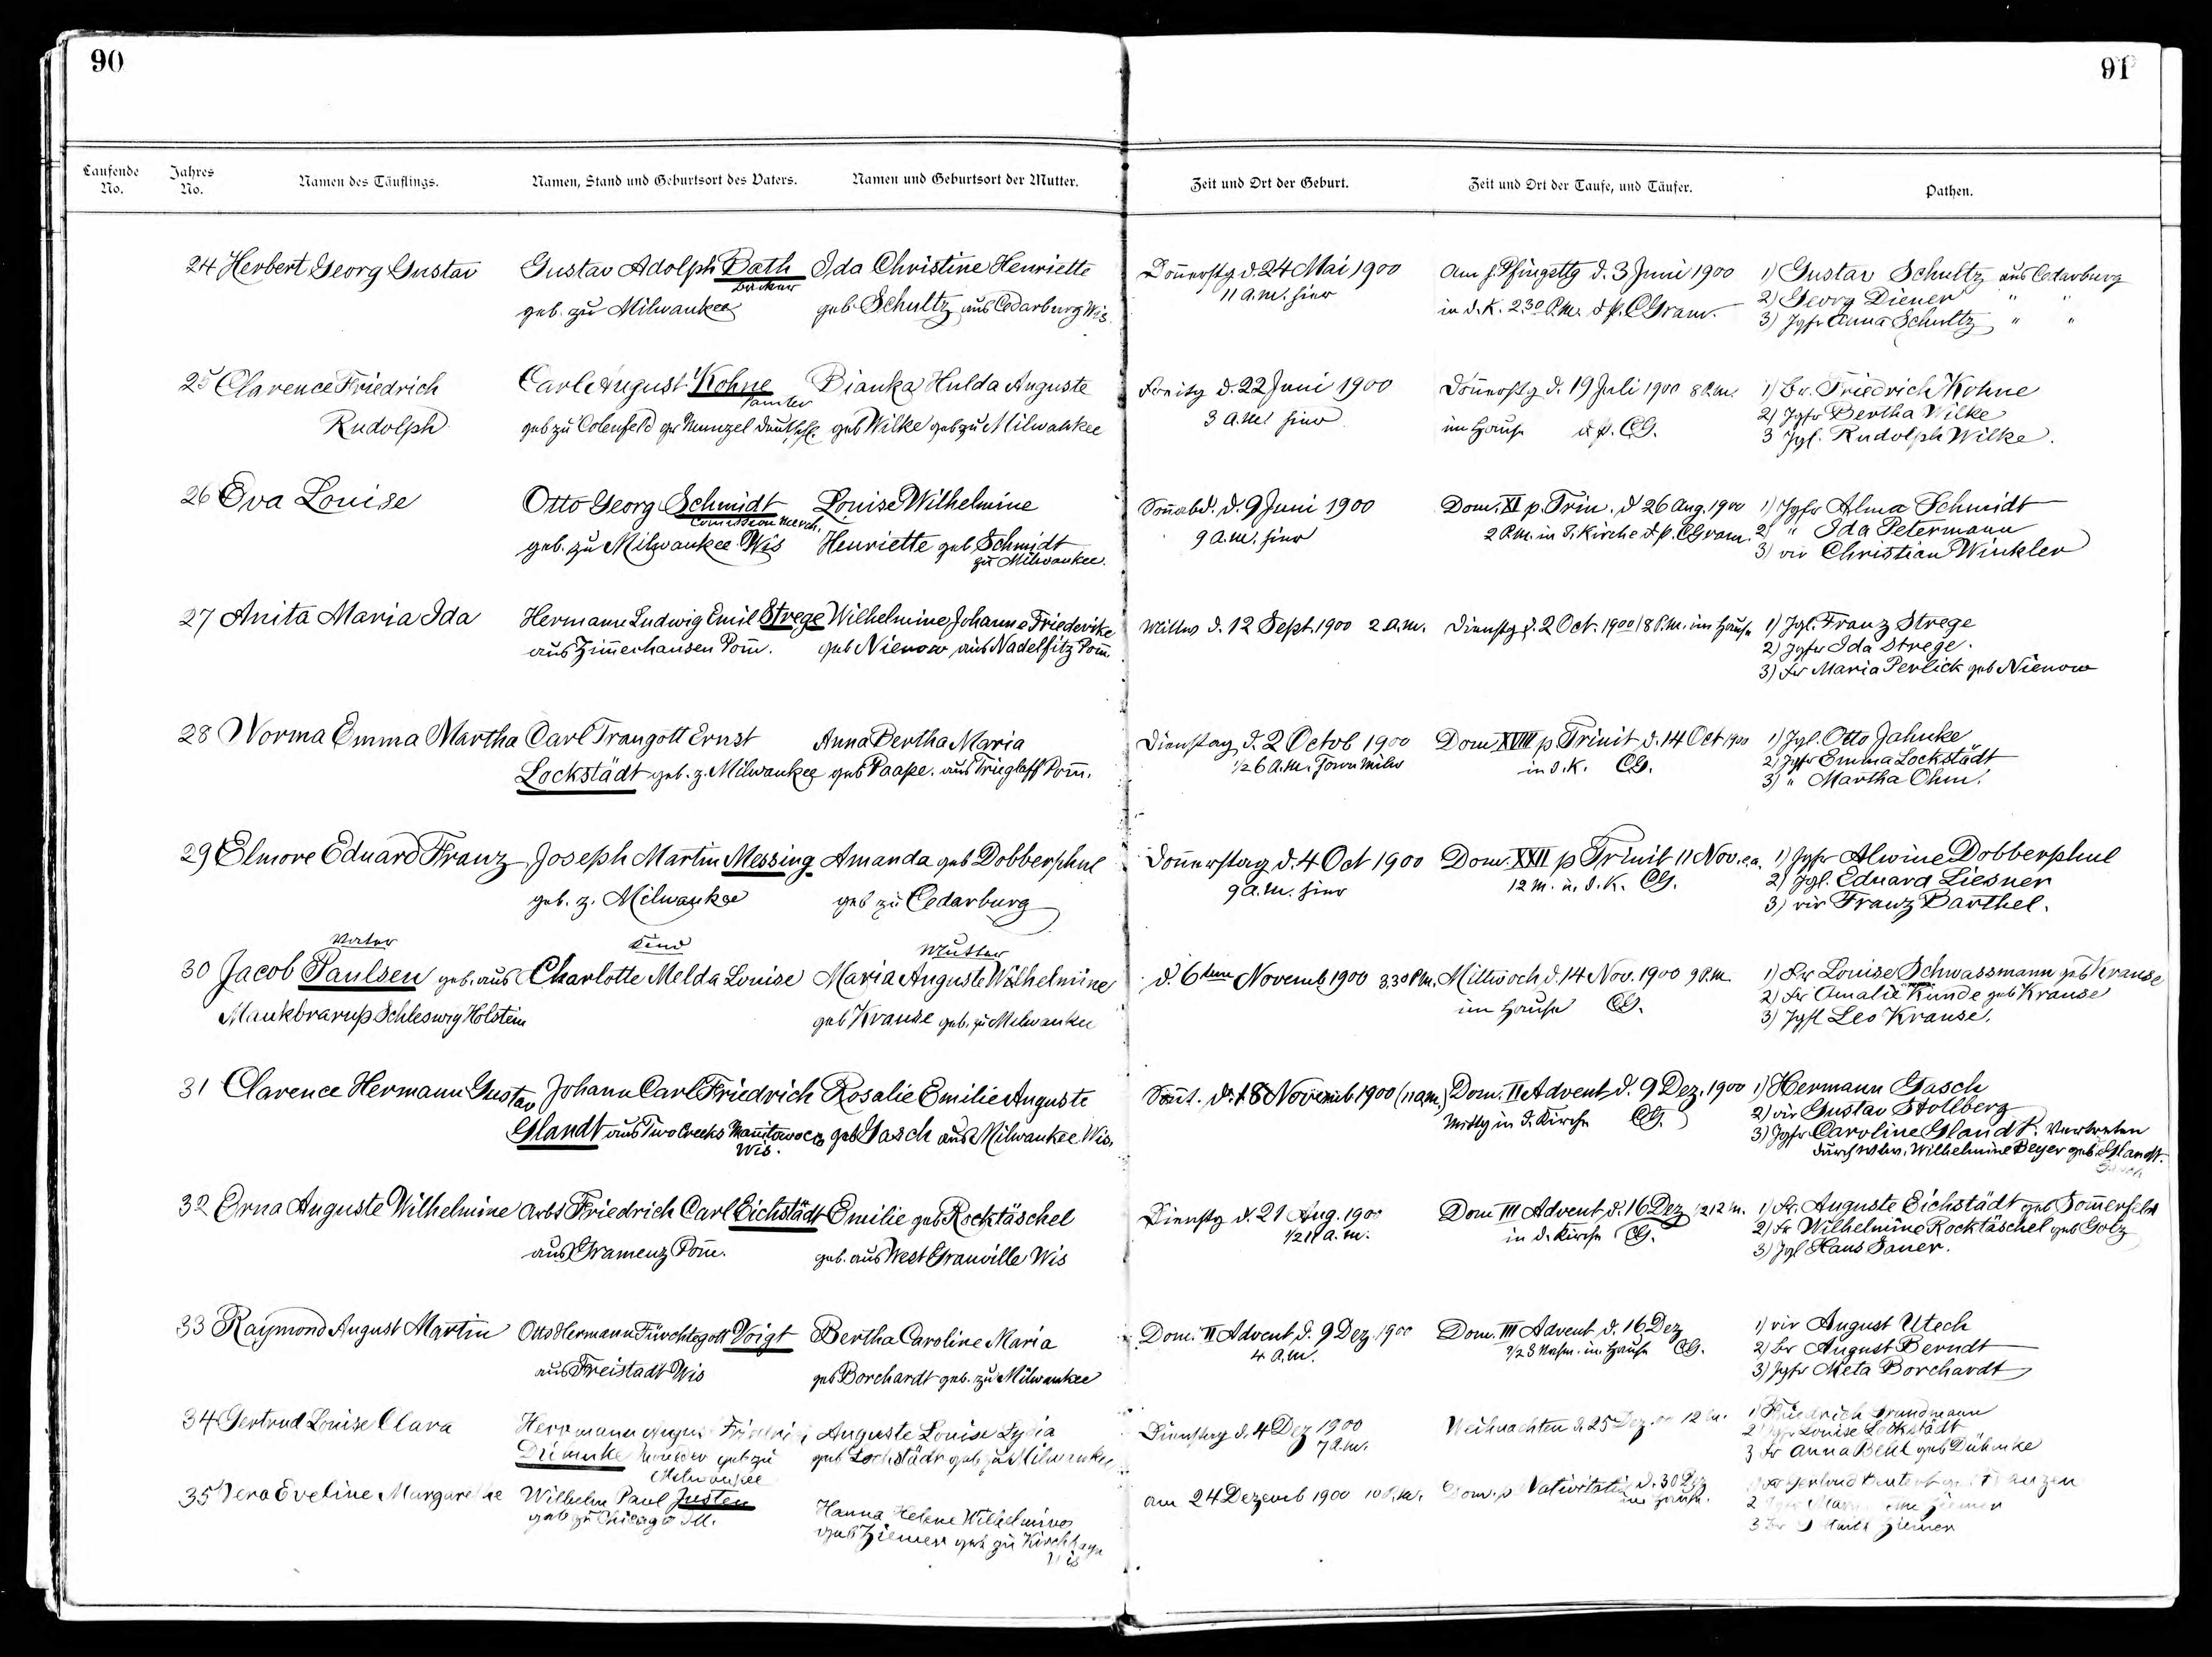 90
91
Laufende No.
Jahres No.
Namen des Täuflings.
Namen, Stand und Geburtsort des Vaters.
Namen und Geburtsort der Mutter.
Zeit und Ort der Geburt.
Zeit und Ort der Taufe, und Täufer.
Pathen.
24 Herbert Georg Gustav
Gustav Adolph Bath
geb. zu Milwaukee
Ida Christine Henriette
geb Schultz aus Cedarburg Wis.
Donnerstg d. 24 Mai 1900
11 a.m. hier
am h. Pfingsttg d. 3 Juni 1900
in d. K. 2.30 P.m. d p. CGram.
1) Gustav Schultz aus Cedarburg
2) Georg Diener " "
3) Jgfr Anna Schultz " "
25 Clarence Friedrich
Rudolph
Carl August Kohne
geb zu Colenfeld
Dianka Hulda Auguste
geb Wilke geb zu Milwaukee
Freitg d. 22 Juni 1900
3 a.m. hier
Donnerstg d. 19 Juli 1900 8 P.m.
im Hause d p. CG.
1) Hr. Friedrich Kohne
2) Jgfr Bertha Wilke
3 Jgl. Rudolph Wilke.
26 Eva Louise
Otto Georg Schmidt
Comission Merch.
geb. zu Milwaukee Wis
Louise Wilhelmine
Henriette geb Schmidt
zu Milwaukee.
Sonnabd. d. 9 Juni 1900
9 a.m. hier
Dom. XI p. Trin. d 26 Aug. 1900
2 P.m. in d. Kirche d p. CGram.
1) Jgfr Alma Schmidt
2) " Ida Petermann
3) vir Christian Winkler
27 Anita Maria Ida
Hermann Ludwig Emil Strege
aus Zimmerhausen Pom.
Wilhelmine Johanne Friederike
geb Nienow aus Nadelfitz Pom
Mittw d. 12 Sept. 1900 2 a.m.
Dienstg d. 2 Oct. 1900 8 P.m. im Hause
1) Jgl. Franz Strege
2) Jgfr Ida Strege.
3) Fr Maria Perlick geb Nienow
28 Norma Emma Martha
Carl Traugott Ernst
Lockstädt geb. z. Milwaukee
Anna Bertha Maria
geb Paape. aus Trieglaff Pom.
Dienstag d. 2 Octob 1900
1/2 6 a.m. Town Milw
Dom XVIII p Trinit d. 14 Oct 1900
in d. K. CG.
1) Jgl. Otto Jahnke
2) Jgfr Emma Lockstädt
3) " Martha Ohm.
29 Elmore Eduard Franz
Joseph Martin Messing
geb. z. Milwaukee
Amanda geb Dobberphul
geb zu Cedarburg
Donnerstag d. 4 Oct 1900
9 a.m. hier
Dom. XXII p Trinit 11 Nov. e.a.
12 M. in d. K. CG.
1) Jgfr Alwine Dobberphul
2) Jgl. Eduard Liesner
3) vir Franz Barthel.
Vater
Kind
Mutter
30 Jacob Paulsen geb. aus
Maukbrarup Schleswig Holstein
Charlotte Melda Louise
Maria Auguste Wilhelmine
geb Krause geb. zu Milwaukee
d. 6ten Novemb 1900 3.30 P.m.
Mittwoch d. 14 Nov. 1900 9 P.m.
im Hause CG.
1) Fr Louise Schwassmann geb Krause
2) Fr Amalie Kunde geb Krause
3) Jgl Leo Krause.
31 Clarence Hermann Gustav
Johann Carl Friedrich
Glandt aus Two Creeks Manitowoc Co
Wis.
Rosalie Emilie Auguste
geb Gasch aus Milwaukee Wis.
Sonnt. d. 18 Novemb 1900 (11 a.m.)
Dom. II Advent d. 9 Dez. 1900
Mittg in d. Kirche CG.
1) Hermann Gasch
2) vir Gustav Stollberg
3) Jgfr Caroline Glandt. Vertreten
durch Wilhelmine Beyer geb Glandt.
32 Erna Auguste Wilhelmine
Arb Friedrich Carl Eichstädt
aus Gramenz Pom.
Emilie geb Rocktäschel
geb. aus West Granville Wis
Dienstg d. 21 Aug. 1900
Dom III Advent d. 16 Dez 1/2 12 M.
in d. Kirche CG.
1) Fr. Auguste Eichstädt geb Somerfeld
2) Fr Wilhelmine Rocktäschel geb Golz
3) Jgl Hans Sauer.
33 Raymond August Martin
Otto Hermann Fürchtegott Voigt
aus Freistadt Wis
Bertha Caroline Maria
geb Borchardt geb. zu Milwaukee
Dom. II Advent d. 9 Dez. 1900
4 a.m.
Dom. III Advent d. 16 Dez
1/2 3 Nachm. im Hause CG.
1) vir August Utech
2) Hr August Berndt
3) Jgfr Meta Borchardt
34 Gertrud Louise Clara
Herrmann August Friedrich
geb zu
Milwaukee
Auguste Louise Lydia
geb Lockstädt geb zu Milwaukee
Dienstag d. 4 Dez 1900
7 a.m.
Weihnachten d. 25 Dez. 00 12 M.
1) Friedrich Grundmann
2) Jgfr Louise Lockstädt
3 Fr Anna Behl geb Dühmke
35 Vera Eveline Margarethe
Wilhelm Paul Justen
geb zu Chicago Ill.
Hanna Helene Wilhelmine
geb Ziemer geb zu Kirchhayn
Wis
am 24 Dezemb 1900 10 P.m.
Dom. p Nativitatis d. 30 Dez
im Hause.
2 Ziemer
3 Ziemer